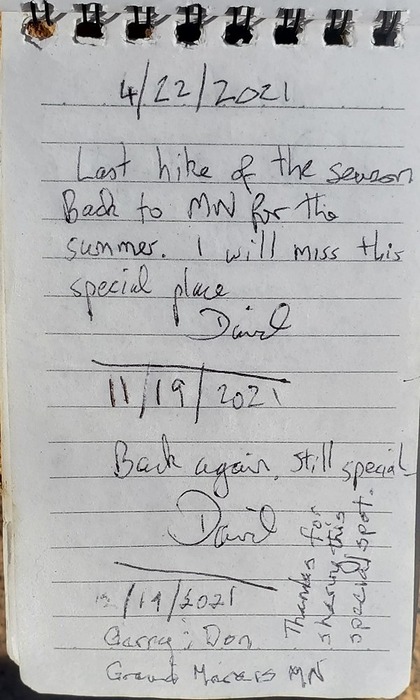 4/22/2021
Last hike of the season
Back to MN for the
summer. I will miss this
special place
David
11/19/2021
Back again, still special
David
/19/2021
Garry & Don
Grand Marais MN
Thanks for
sharing this
special spot.